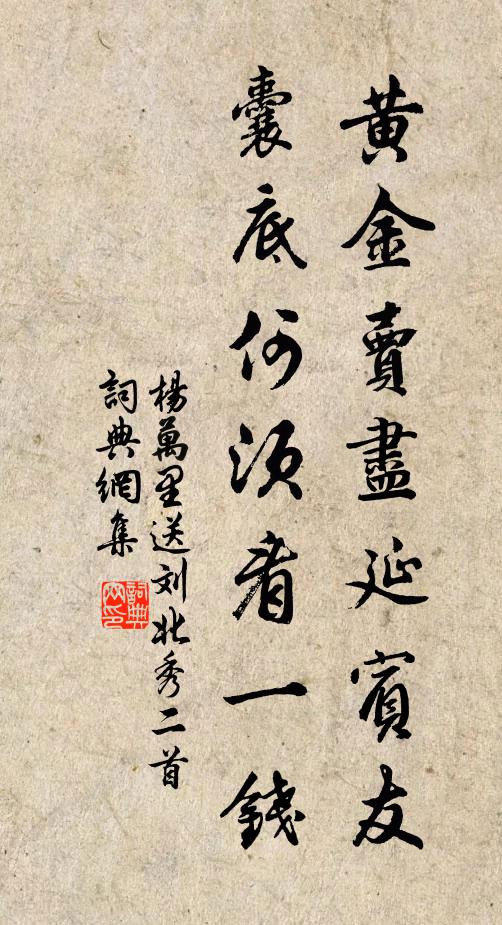 黄金賣盡延賓友
囊底何須着一錢
楊萬里送刘北秀二首
詞典網集
詞典
网印